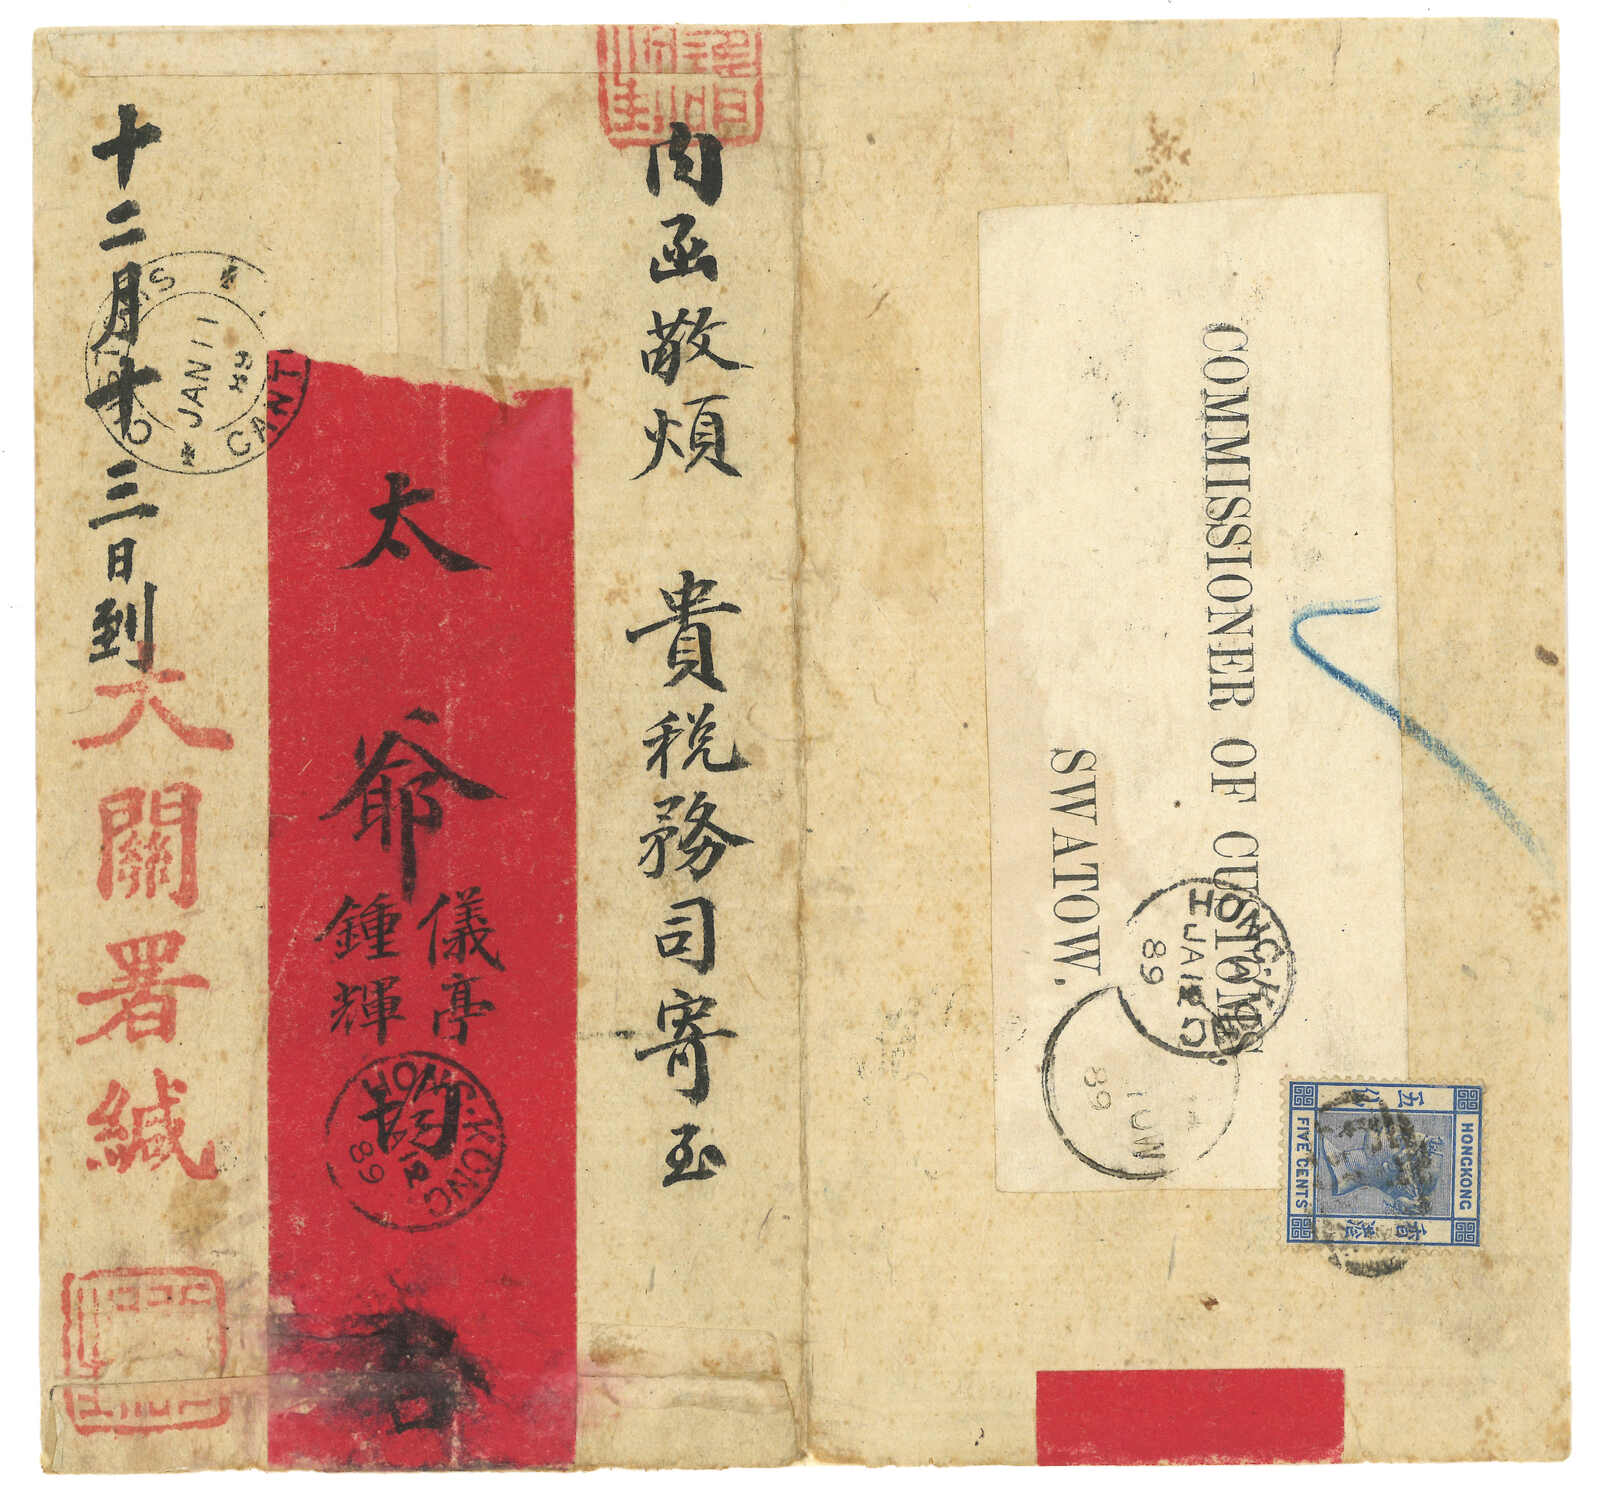 內函敬煩 貴稅務司寄玉
太爺
儀亭
鍾輝
均
啟
大關署緘
十二月十三日到
CUSTOMS
CANT
JAN 11
COMMISSIONER OF CUSTOMS,
SWATOW.
HONG-KONG
JA 12
89
HONG-KONG
C
89
89
HONGKONG
FIVE CENTS
香港
五仙